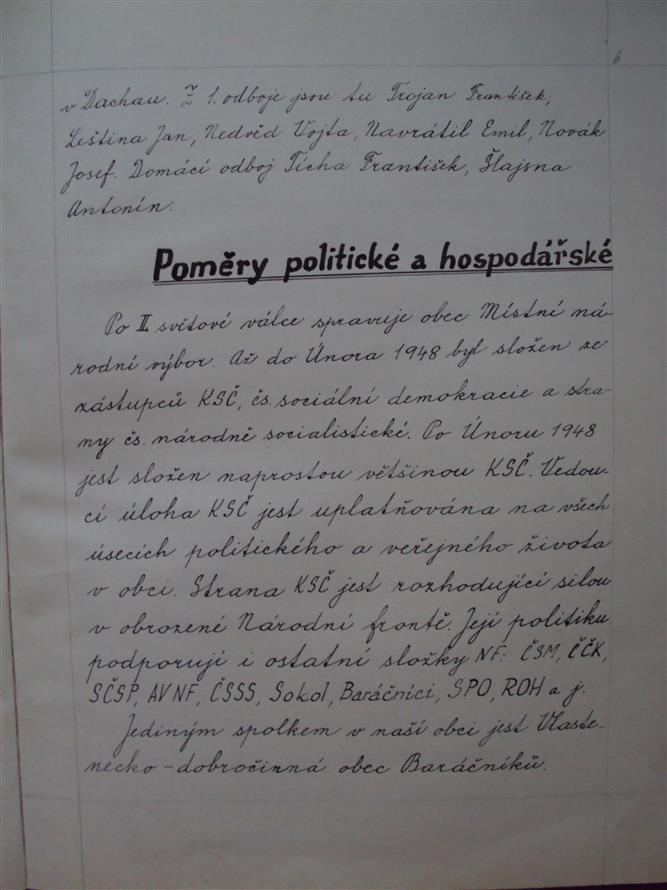 6
v Dachau. Z 1. odboje jsou tu Trojan František,
Leština Jan, Nedvěd Vojta, Navrátil Emil, Novák
Josef. Domácí odboj Tícha František, Šlajsna
Antonín.
Poměry politické a hospodářské
Po II světové válce spravuje obec Místní ná-
rodní výbor. Až do Února 1948 byl složen ze
zástupců KSČ, čs. sociální demokracie a stra-
ny čs. národně socialistické. Po Únoru 1948
jest složen naprostou většinou KSČ. Vedou-
cí úloha KSČ jest uplatňována na všech
úsecích politického a veřejného života
v obci. Strana KSČ jest rozhodující silou
v obrozené Národní frontě. Její politiku
podporují i ostatní složky NF: ČSM, ČČK,
SČSP, AV NF, ČSSS, Sokol, Baráčníci, SPO, ROH a j.
Jediným spolkem v naší obci jest Vlaste-
necko-dobročinná obec Baráčníků.